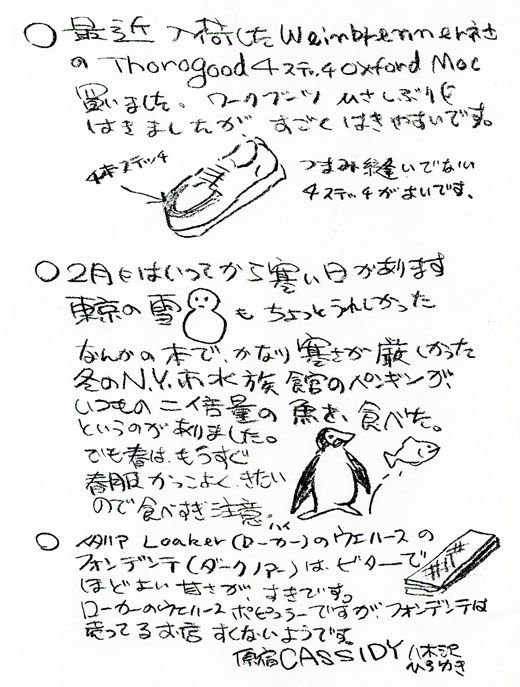 ○ 最近入荷したWeinbrenner社
の Thorogood 4ステッチOxford Moc
買いました。ワークブーツ ひさしぶりに
はきましたが、すごくはきやすいです。
4本ステッチ
つまみ縫いでない
4ステッチがよいです。
○ 2月にはいってから寒い日があります
東京の雪も ちょっとうれしかった
なんかの本で、かなり寒さが厳しかった
冬のN.Y.市水族館のペンギンが、
いつもの二倍量の魚を食べた。
というのがありました。
でも春は、もうすぐ
春服かっこよく、きたい
ので食べすぎ注意。
○ イタリア Loaker(ローカー)のウエハースの
ハイ
フォンデンテ(ダークノアー)は、ビターで
ほどよい甘さが、すきです。
ローカーのウエハースポピュラーですが、フォンデンテは
売ってるお店 すくないようです。
原宿CASSIDY 八木沢
ひろゆき